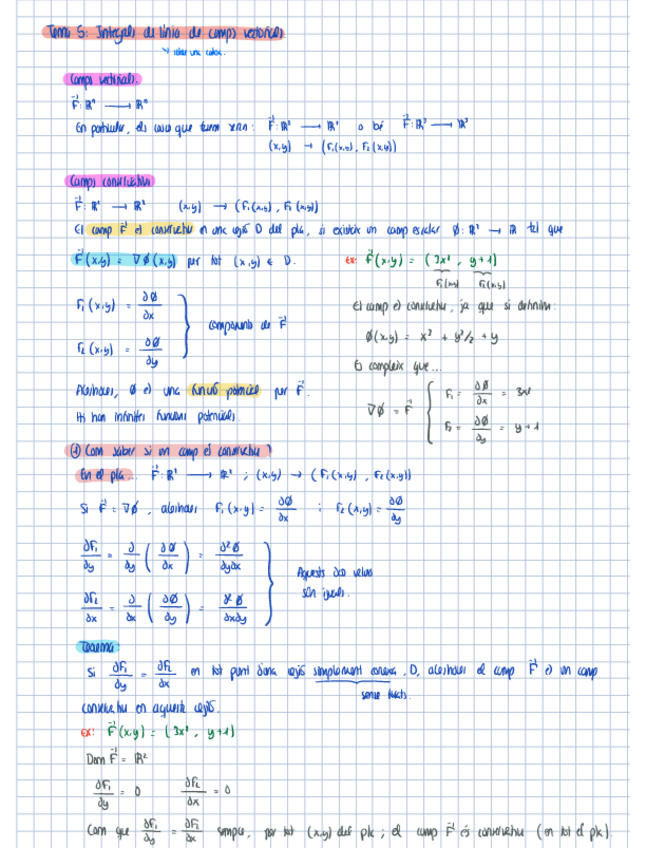 Tema 5: Integrals de línia de camps vectorials
sobre una corba.
Camps vectorials.
F⃗: ℝⁿ → ℝⁿ
En particular, els casos que tenim són: F⃗: ℝ² → ℝ² o bé F⃗: ℝ³ → ℝ³
(x,y) → (F₁(x,y), F₂(x,y))
Camps conservatius
F⃗: ℝ² → ℝ² (x,y) → (F₁(x,y), F₂(x,y))
El camp F⃗ és conservatiu en una regió D del pla, si existeix un camp escalar Ø: ℝ² → ℝ tal que
F⃗(x,y) = ∇Ø(x,y) per tot (x,y) ∈ D.
ex: F⃗(x,y) = (3x², y+1)
F₁(x,y) F₂(x,y)
El camp és conservatiu, ja que si definim:
Ø(x,y) = x³ + y²/2 + y
Es compleix que...
∇Ø = F⃗ { F₁ = ∂Ø/∂x = 3x²
F₂ = ∂Ø/∂y = y+1
F₁(x,y) = ∂Ø/∂x
F₂(x,y) = ∂Ø/∂y } components de F⃗
Aleshores, Ø és una funció potencial per F⃗.
Hi han infinites funcions potencials.
① Com saber si un camp és conservatiu?
En el pla... F⃗: ℝ² → ℝ² ; (x,y) → (F₁(x,y), F₂(x,y))
Si F⃗ = ∇Ø, aleshores F₁(x,y) = ∂Ø/∂x ; F₂(x,y) = ∂Ø/∂y
∂F₁/∂y = ∂/∂y (∂Ø/∂x) = ∂²Ø/∂y∂x
∂F₂/∂x = ∂/∂x (∂Ø/∂y) = ∂²Ø/∂x∂y
} Aquests dos valors
són iguals.
Teorema:
Si ∂F₁/∂y = ∂F₂/∂x en tot punt d'una regió simplement connexa, D, aleshores el camp F⃗ és un camp
sense forats.
conservatiu en aquesta regió.
ex: F⃗(x,y) = (3x², y+1)
Dom F⃗ = ℝ²
∂F₁/∂y = 0 ∂F₂/∂x = 0
Com que ∂F₁/∂y = ∂F₂/∂x sempre, per tot (x,y) del pla; el camp F⃗ és conservatiu (en tot el pla).